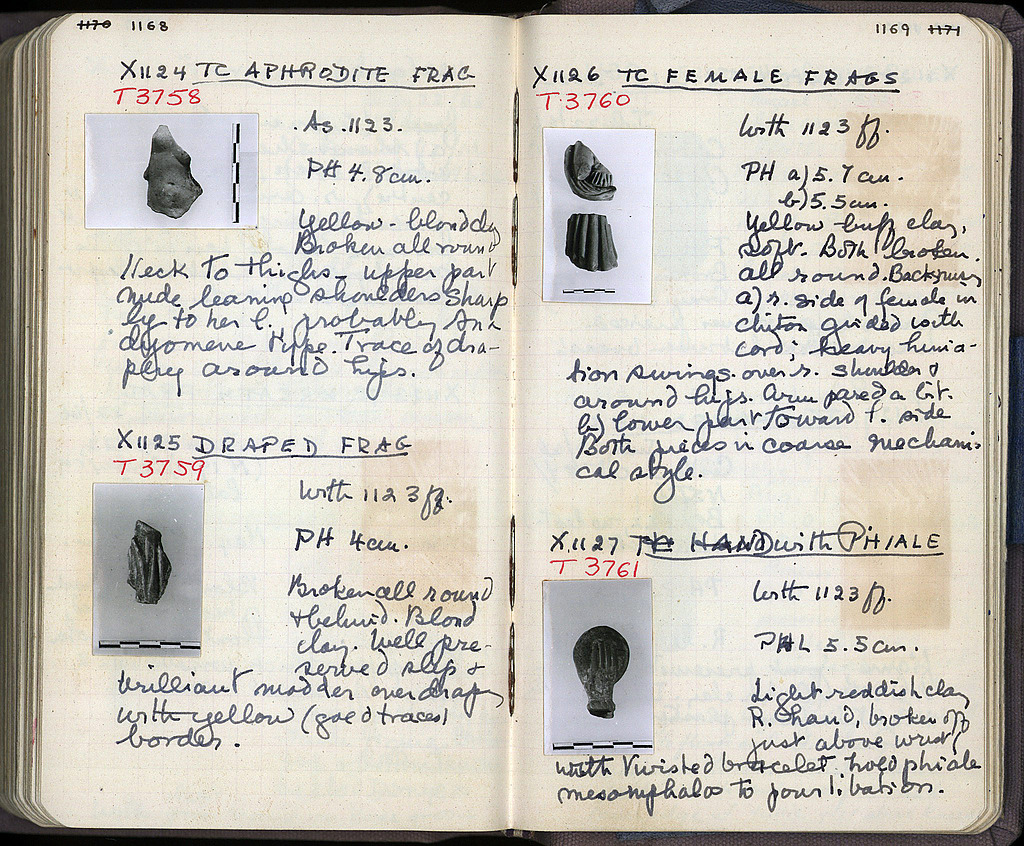 1170 1168
X1124 TC APHRODITE FRAG
T3758
As 1123.
PH 4.8 cm.
Yellow-blond clay
Broken all round
Neck to thighs - upper part
nude leaning shoulders sharp
ly to her l. probably Ana
dyomene type. Trace of dra-
pery around hips.
X1125 DRAPED FRAG
T3759
With 1123 ff.
PH 4 cm.
Broken all round
+ behind. Blond
clay. Well pre-
served slip +
brilliant madder over drapery
with yellow (gold traces)
border.
1169 1171
X1126 TC FEMALE FRAGS
T3760
With 1123 ff.
PH a) 5.7 cm.
b) 5.5 cm.
Yellow buff clay,
soft. Both broken
all round. Backs missing
a) r. side of female in
chiton girded with
cord; heavy hima-
tion swings over r. shoulder &
around hips. Arm pared a bit.
b) lower part toward l. side
Both pieces in coarse mechani-
cal style.
X1127 TC HAND with PHIALE
T 3761
With 1123 ff.
PHL 5.5 cm.
Light reddish clay
R. hand, broken off
just above wrist,
with twisted bracelet, hold phiale
mesomphalos to pour libation.